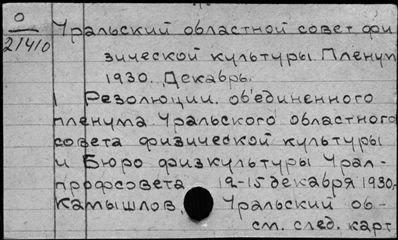 О
21410
Уральский областной совет фи
зической культуры. Пленум
1930. Декабрь.
Резолюции. об'единенного
пленума Уральского областного
совета физической культуры
и Бюро физкультуры Урал-
профсовета 12-15 декабря 1930,
Камышлов, Уральский об-
см. след. карт